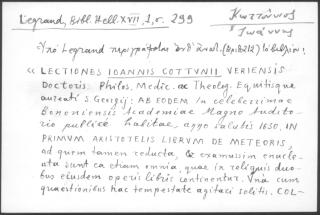 Legrand, Bibl. Hell. XVII, 1, σ. 299
Κωττούνιος
Ἰωάννης
Ὑπὸ Legrand περιγράφεται
« LECTIONES IOANNIS COTTVNII VERIENSIS
Doctoris Philos. Medic. ac Theolog. Equitisque
aureati S. Georgij: AB EODEM in celeberrimae
Bononiensis Academiae Magno Audito-
rio publicè habitae, anno salutis 1630, IN
PRIMVM ARISTOTELIS LIBRVM DE METEORIS,
ad quem tamen reducta, & examusim enucle-
ata sunt ea etiam omnia quae in reliquis duo-
bus eiusdem operis libris continentur. Vna cum
quaestionibus hac tempestate agitari solitis. COL-